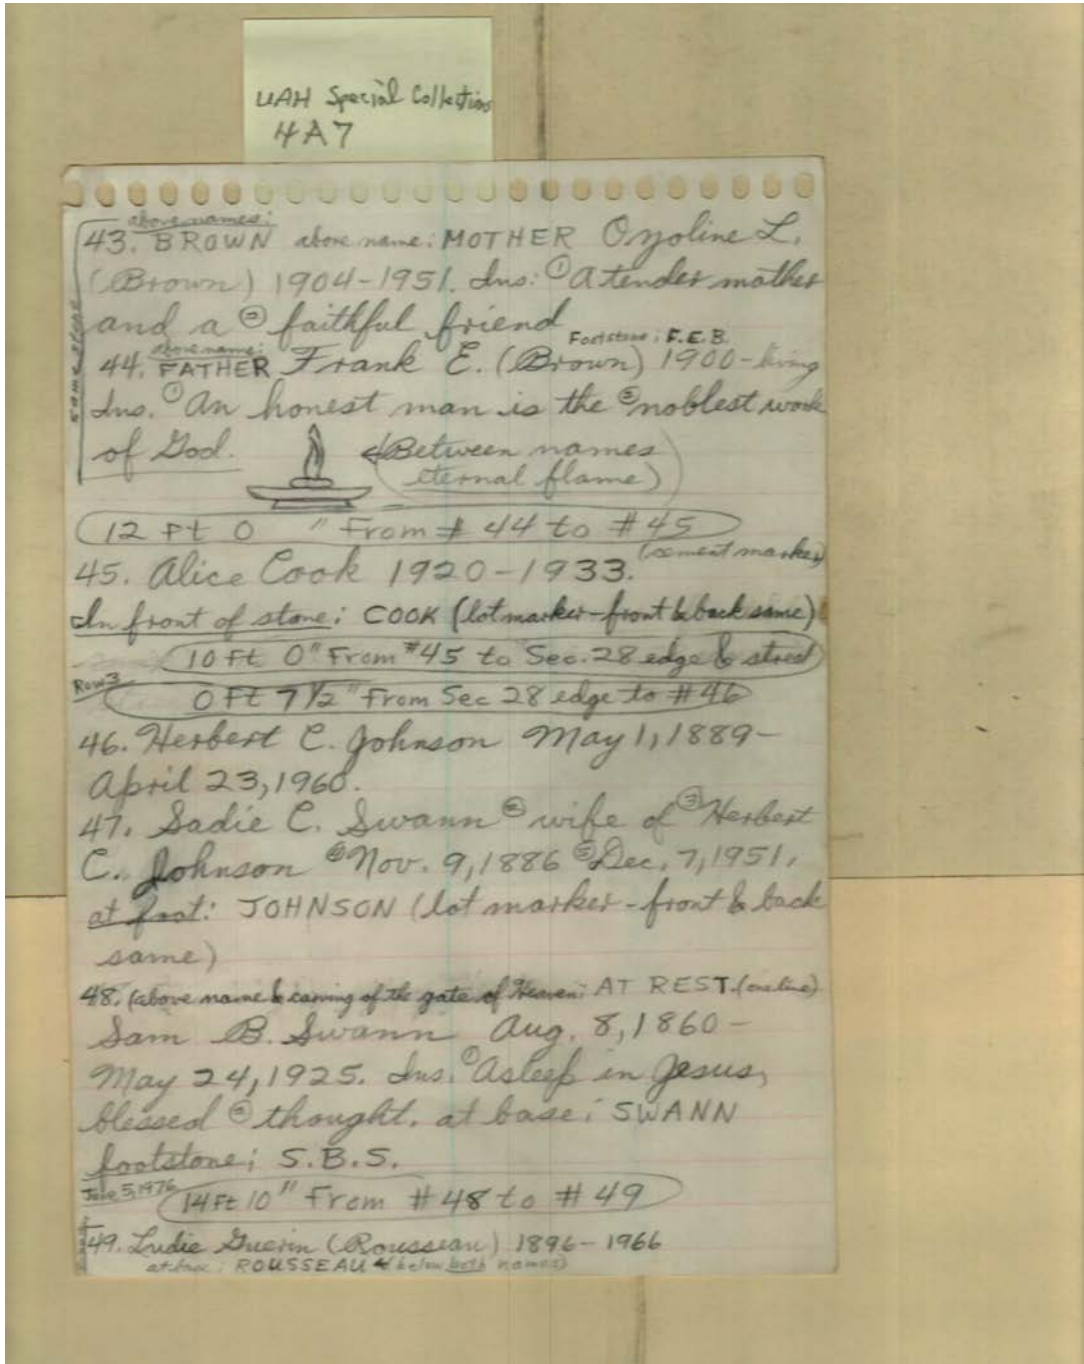 UAH Special Collections
4A7
above names:
43. BROWN above name: MOTHER Ozoline L.
(Brown) 1904-1951. Ins: ① A tender mother
and a ② faithful friend
Footstone: F.E.B.
above name:
44. FATHER Frank E. (Brown) 1900-living
Ins. ① An honest man is the ② noblest work
of God.
(Between names
eternal flame)
same stone
12 Ft 0 " From # 44 to # 45
(cement marker)
45. Alice Cook 1920-1933.
In front of stone: COOK (lot marker-front & back same)
10 Ft 0" From #45 to Sec. 28 edge & street
Row 3
0 Ft 7 1/2" From Sec 28 edge to #46
46. Herbert C. Johnson May 1, 1889-
April 23, 1960.
47. Sadie C. Swann ② wife of ③ Herbert
C. Johnson ④ Nov. 9, 1886 ⑤ Dec. 7, 1951.
at foot: JOHNSON (lot marker-front & back
same)
48. (above name & carving of the gate of Heaven: AT REST. (one line)
Sam B. Swann Aug. 8, 1860-
May 24, 1925. Ins. ① Asleep in Jesus,
blessed ② thought. at base: SWANN
footstone: S.B.S.
June 5, 1976
14 Ft 10" From #48 to #49
49. Ludie Guerin (Rousseau) 1896-1966
at base: ROUSSEAU (below both names)